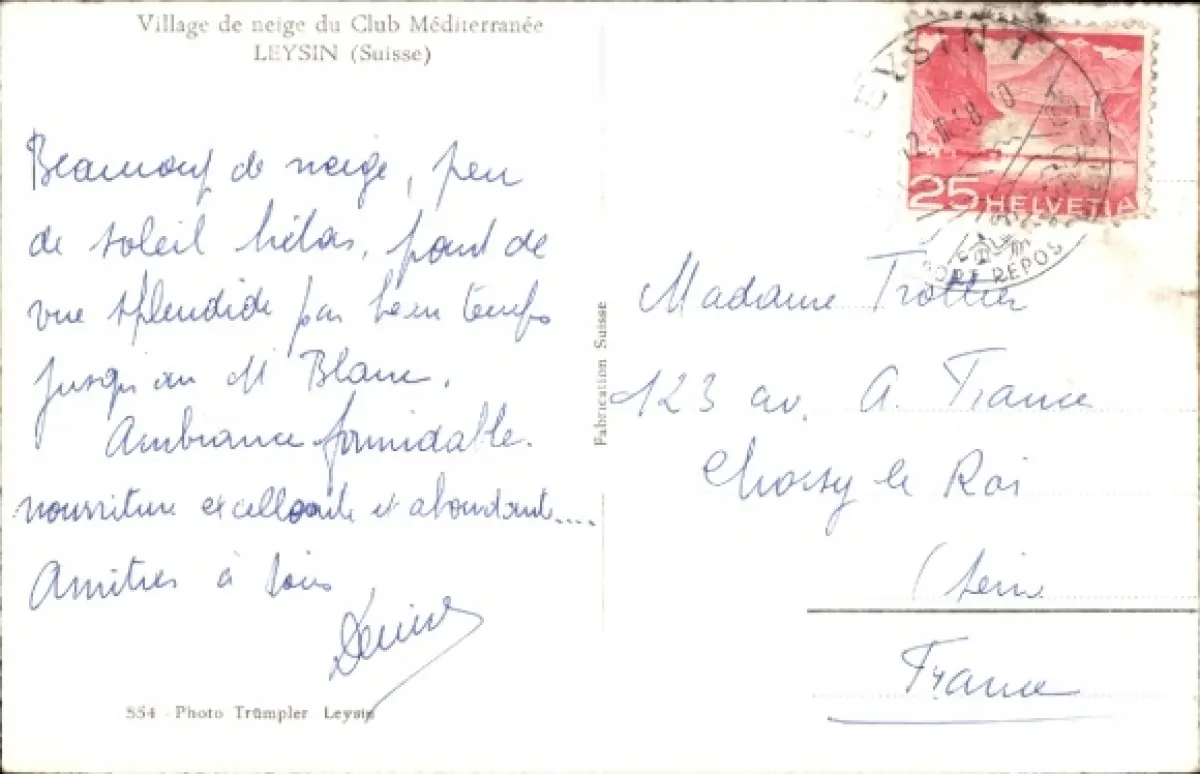 Village de neige du Club Méditerranée
LEYSIN (Suisse)
Beaucoup de neige, peu
de soleil hélas, point de
vue splendide par beau temps
jusqu'au Mt Blanc.
Ambiance formidable.
nourriture excellente et abondante....
Amitiés à tous
Denise
554 - Photo Trümpler Leysin
Fabrication Suisse
LEYSIN 1
SPORT REPOS
25 HELVETIA
Madame Trottier
123 av. A. France
Choisy le Roi
(Seine
France